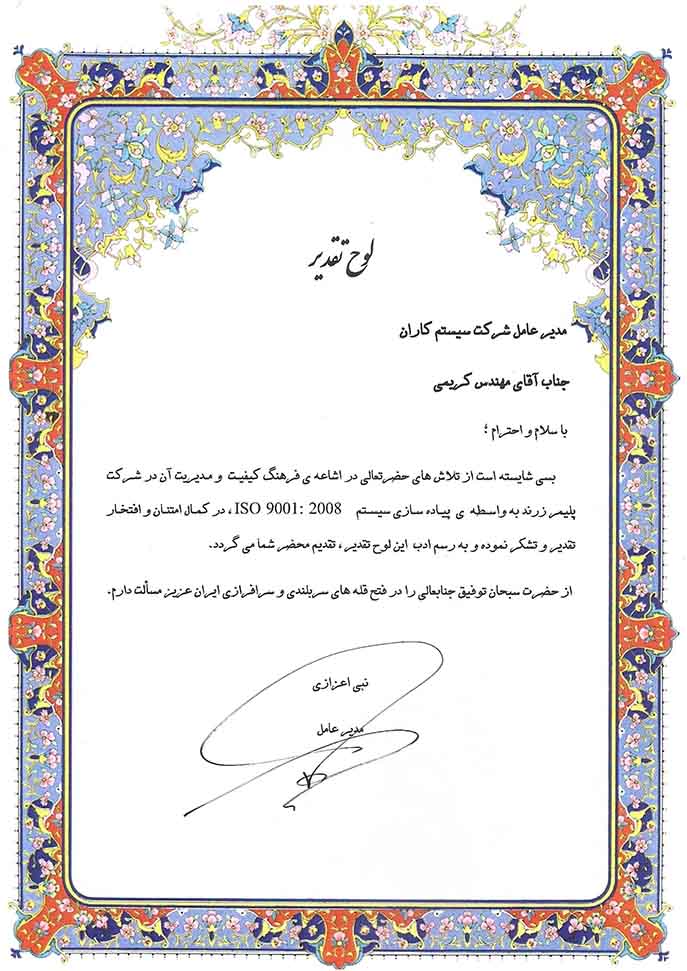 لوح تقدیر
مدیر عامل شرکت سیستم کاران
جناب آقای مهندس کریمی
با سلام و احترام ؛
بسی شایسته است از تلاش های حضرتعالی در اشاعه ی فرهنگ کیفیت و مدیریت آن در شرکت
پلیمر زرند به واسطه ی پیاده سازی سیستم ISO 9001: 2008 ، در کمال امتنان و افتخار
تقدیر و تشکر نموده و به رسم ادب این لوح تقدیر ، تقدیم محضر شما می گردد.
از حضرت سبحان توفیق جنابعالی را در فتح قله های سربلندی و سرافرازی ایران عزیز مسألت دارم.
نبی اعزازی
مدیر عامل